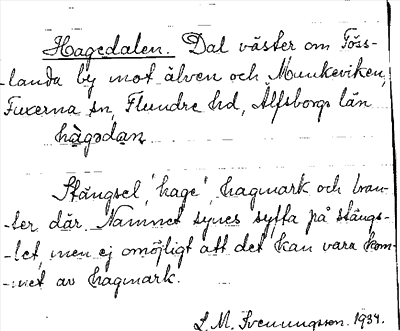 Hagedalen. Dal väster om Töss-
-landa by mot älven och Munkeviken,
Fuxerna sn, Flundre hd, Älfsborgs län
hàgədan
Stängsel, 'hage', hagmark och bran-
-ter där. Namnet synes syfta på stängs-
-let, men ej omöjligt att det kan vara kom-
-met av hagmark.
L. M. Svenungsson. 1934.